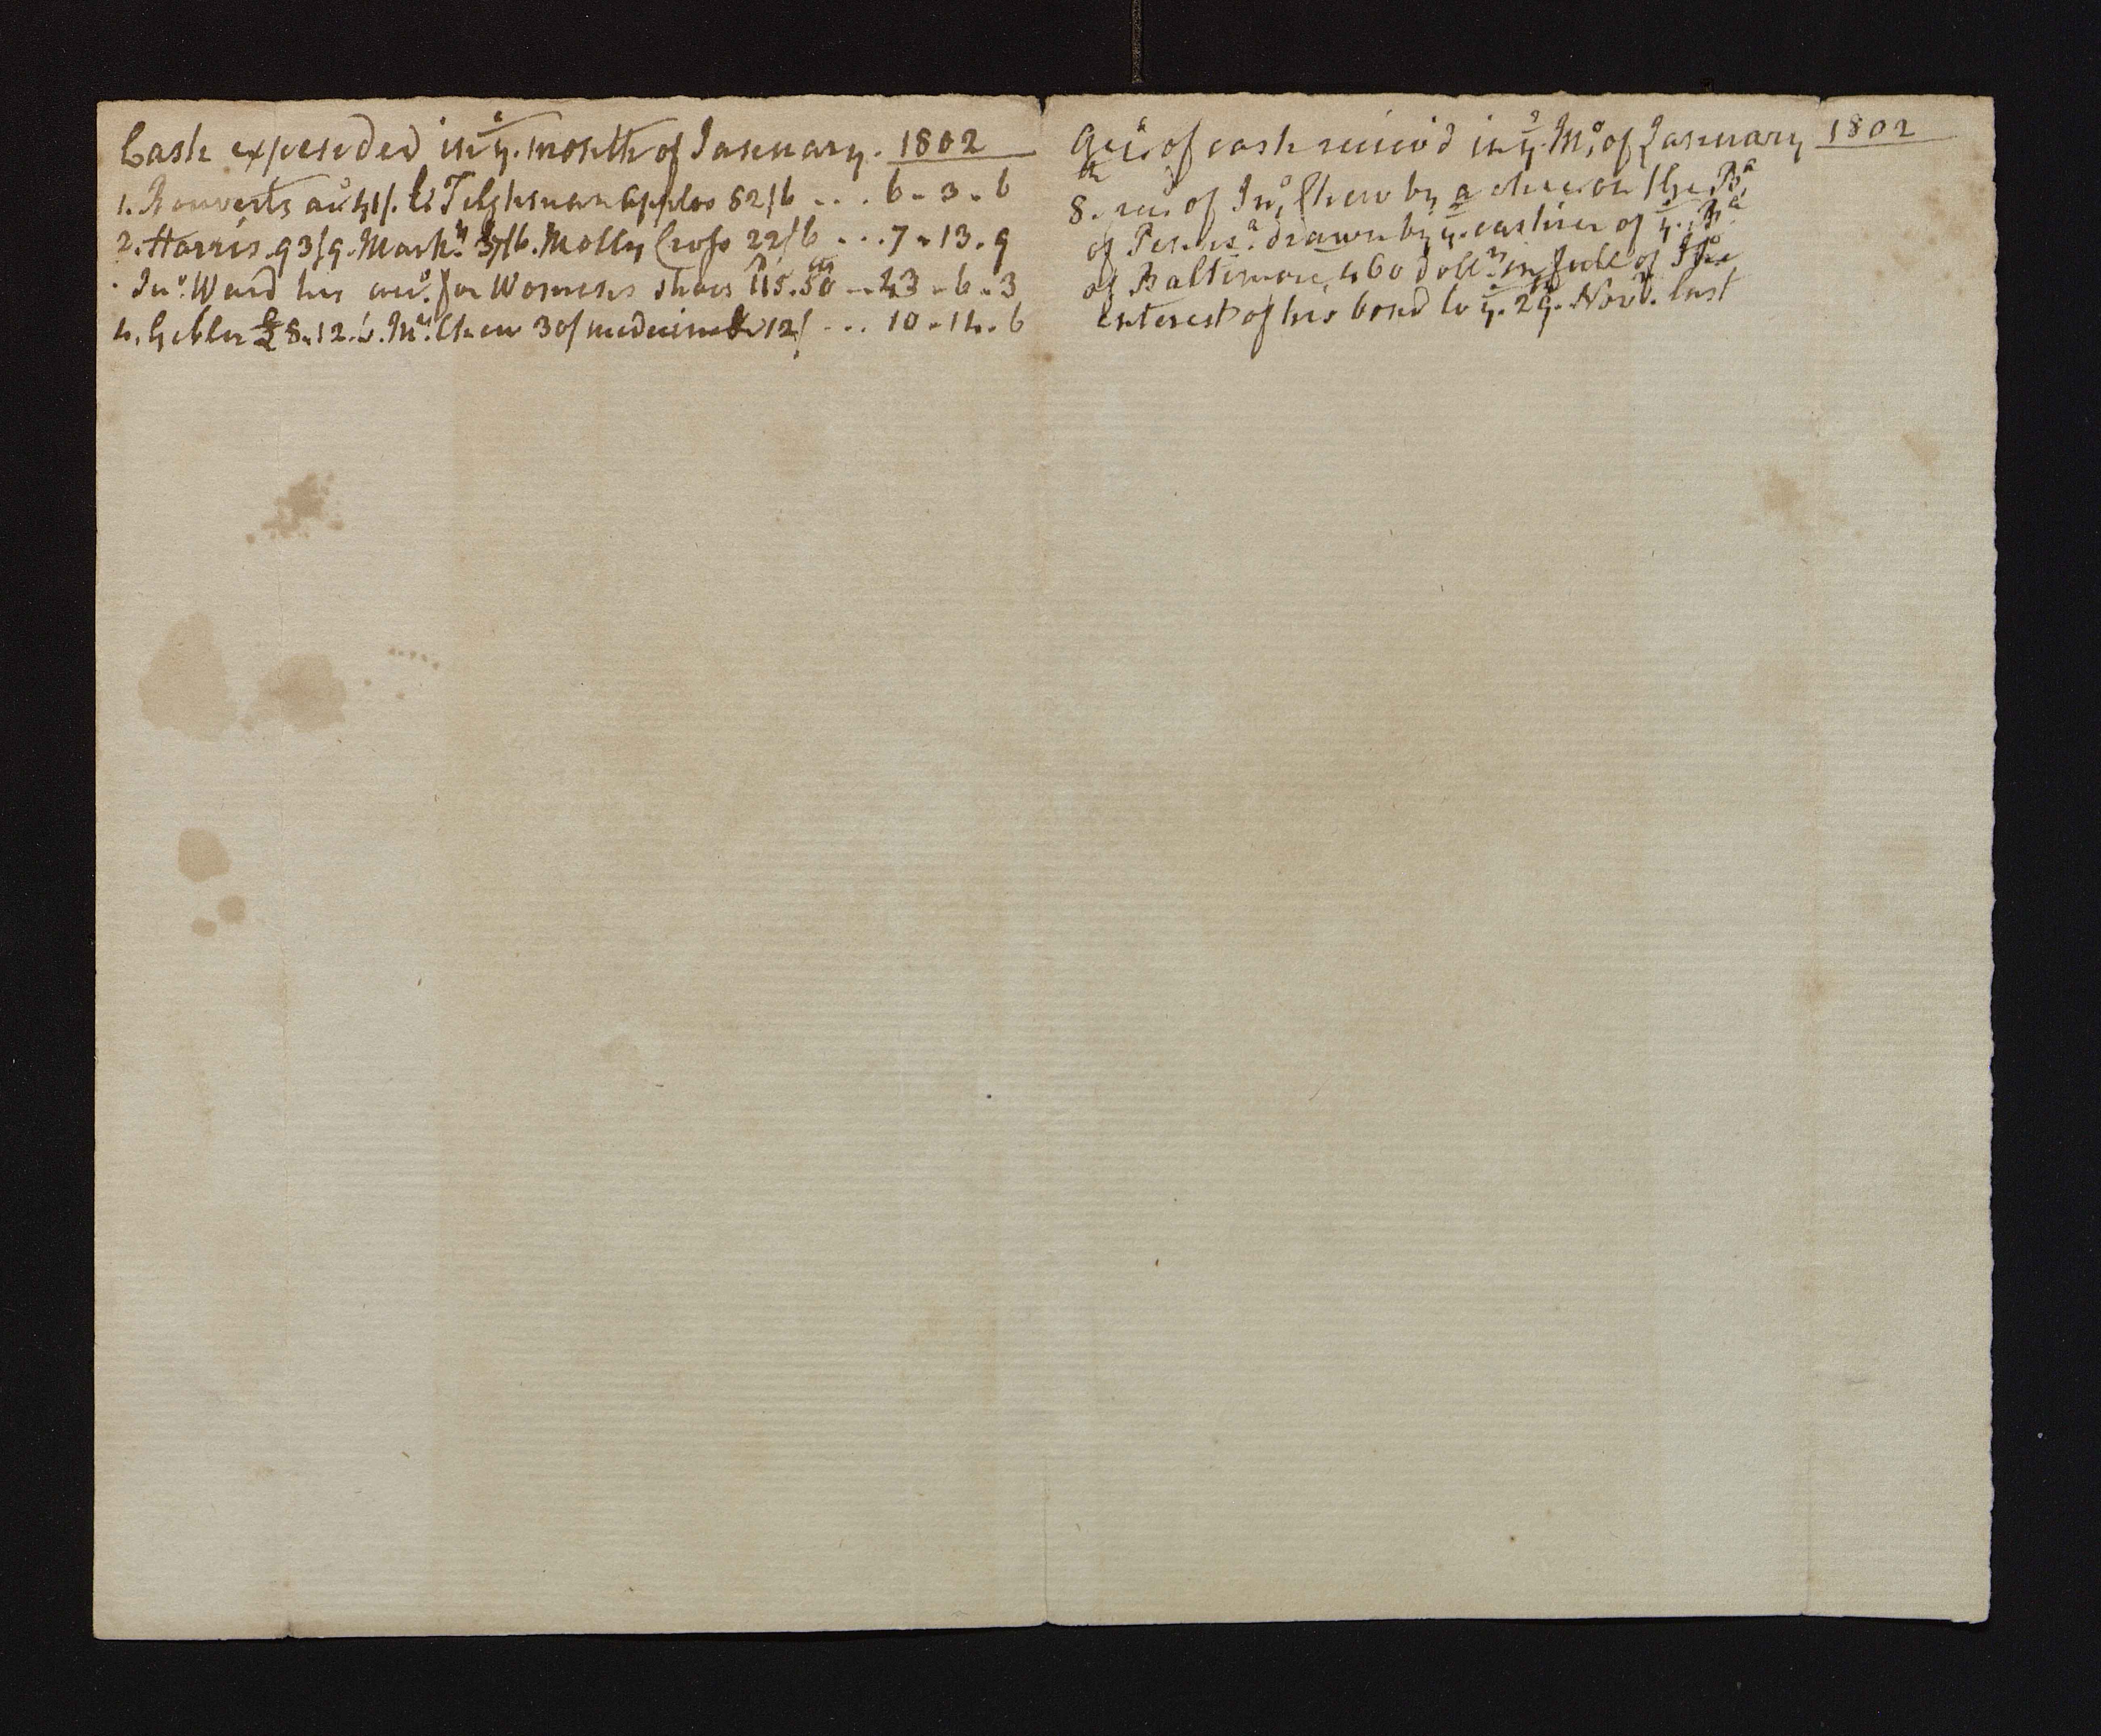 Cash expended in yᵉ. month of January. 1802
1. Rouverts accᵗ 41/. Ll Tilghman apples 82/6 ... 6-3-6
2. Harris. 93/9. Markᵗˢ 37/6. Molly Cross 22/6 ... 7-13-9
Jnᵒ. Ward his accᵗ. for Womens shoes 115.50 - 43-6-3
4. Gebler £8.12.6. Mʳˢ. Chew 30/ medicine 12/ ... 10-14-6
Accᵗ of cash receiv'd in yᵉ. Mᵒ. of January 1802
8. rec. of Jnᵒ. Chew by a chec on the Bᵃ
of Pennsᵃ. drawn by yᵉ. cashier of yᵉ. Bᵃ
of Baltimore, 460 dollʳˢ. in full of the
interest of his bond to yᵉ. 29. Novʳ. last